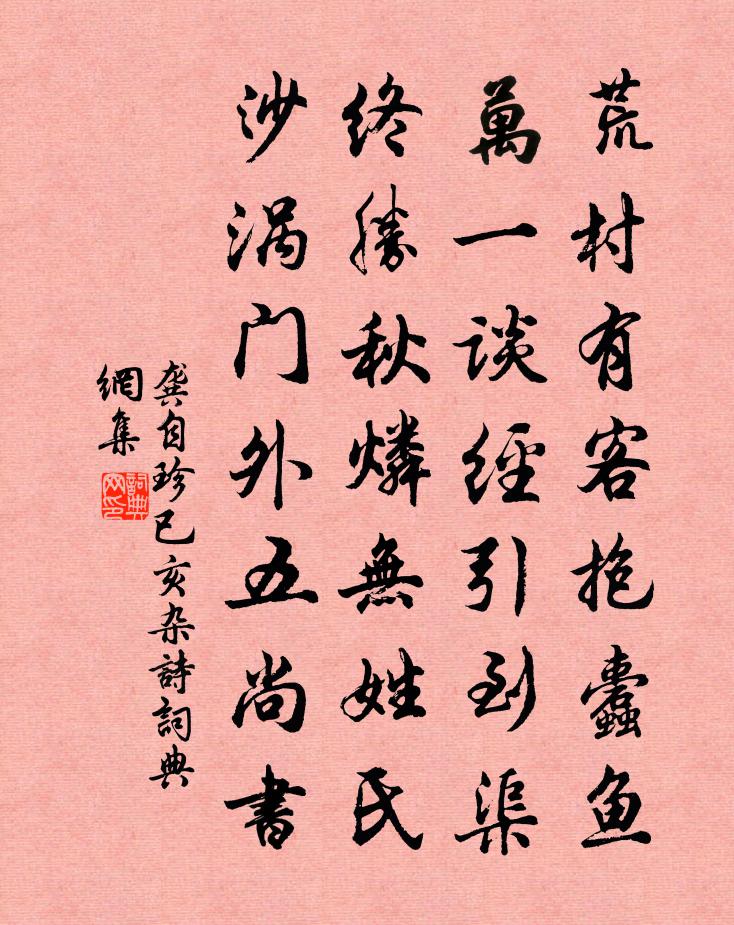 荒村有客抱蠹鱼
萬一谈經引到渠
终勝秋燐無姓氏
沙涡门外五尚書
龚自珍已亥杂詩詞典
網集
詞典網印